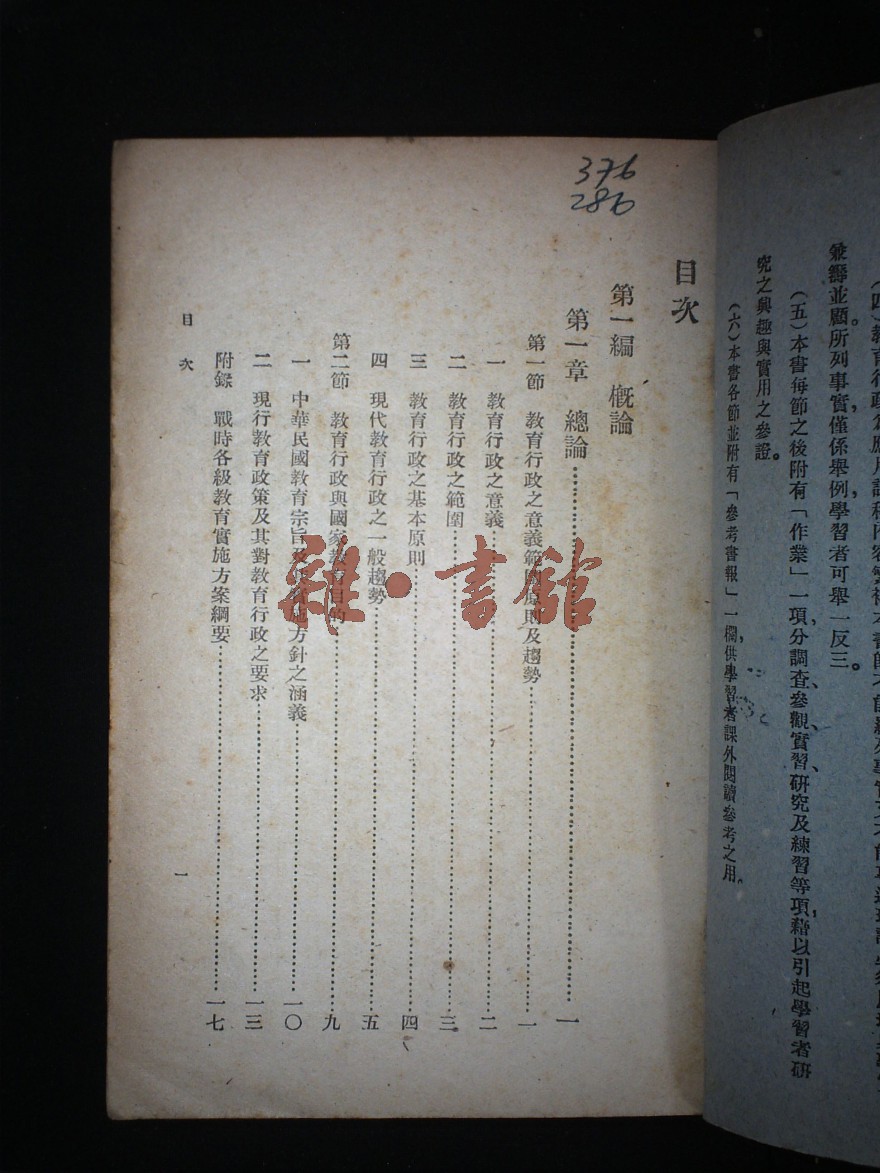 兼籌並顧所列事實僅係舉例，學習者可舉一反三。
（五）本書每節之後附有「作業」一項分調查、參觀、實習、研究及練習等項，藉以引起學習者研
究之興趣與實用之參證。
（六）本書各節並附有「參考書報」一欄，供學習者課外閱讀參考之用。
376
286
目次
第一編 概論
第一章 總論……一
第一節 教育行政之意義範圍原則及趨勢……一
一 教育行政之意義……二
二 教育行政之範圍……三
三 教育行政之基本原則……四
四 現代教育行政之一般趨勢……五
第二節 教育行政與國家教育目的……九
一 中華民國教育宗旨及其實施方針之涵義……一〇
二 現行教育政策及其對教育行政之要求……一三
附錄 戰時各級教育實施方案綱要……一七
目次
一
雜·書館